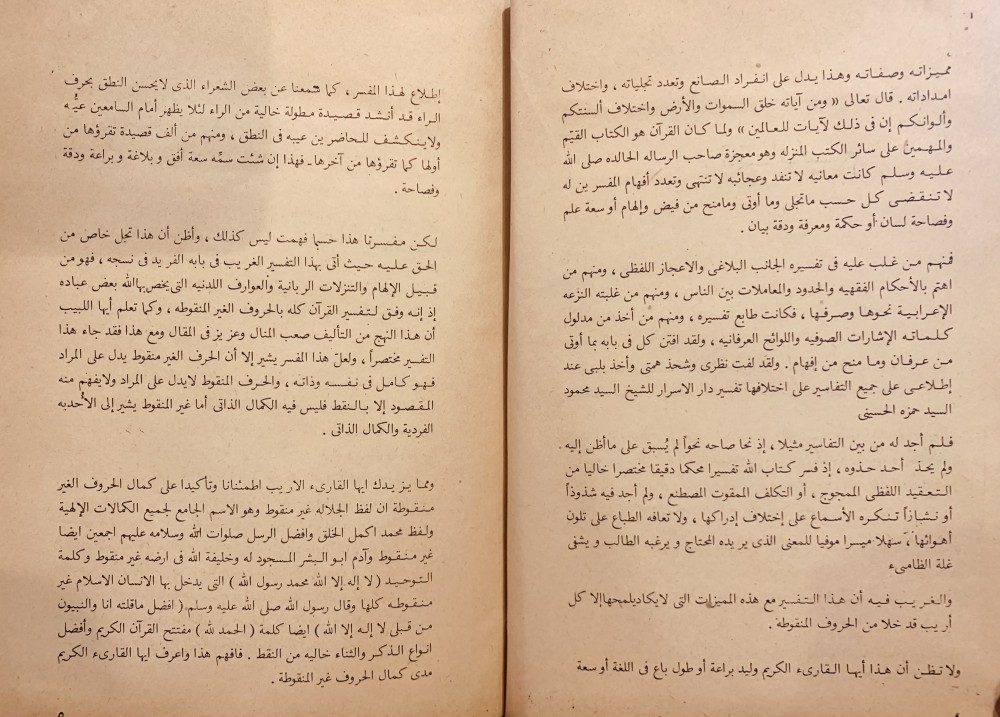 مميزاته وصفاته وهذا يدل على انفراد الصانع وتعدد تجلياته ، واختلاف
امداداته . قال تعالى « ومن آياته خلق السموات والأرض واختلاف ألسنتكم
وألوانكم إن فى ذلك لآيات للعالمين » ولما كان القرآن هو الكتاب القيّم
والمهمين على سائر الكتب المنزله وهو معجزة صاحب الرساله الخالده صلى الله
عليه وسلم كانت معانيه لا تنفد وعجائبه لا تنتهى وتعدد أفهام المفسرين له
لا تنقضى كل حسب ماتجلى وما أوتى ومامنح من فيض وإلهام أو سعة علم
وفصاحة لسان أو حكمة ومعرفة ودقة بيان .
فمنهم من غلب عليه فى تفسيره الجانب البلاغى والاعجاز اللفظى ، ومنهم من
اهتم بالأحكام الفقهيه والحدود والمعاملات بين الناس ، ومنهم من غلبته النزعه
الإعرابية نحوها وصرفها ، فكانت طابع تفسيره ، ومنهم من أخذ من مدلول
كلماته الإشارات الصوفيه واللوائح العرفانيه ، ولقد افتن كل فى بابه بما أوتى
من عرفان وما منح من إفهام . ولقد لفت نظرى وشحذ همتى وأخذ بلبى عند
إطلاعى على جميع التفاسير على اختلافها تفسير دار الاسرار للشيخ السيد محمود
السيد حمزه الحسينى
فلم أجد له من بين التفاسير مثيلا ، إذ نحا صاحه نحواً لم يُسبق على ماأظن إليه .
ولم يحذ أحد حذوه ، إذ فسر كتاب الله تفسيرا محكما دقيقا مختصرا خاليا من
التعقيد اللفظى الممجوج ، أو التكلف الممقوت المصطنع ، ولم أجد فيه شذوذاً
أو نشازاً تنكره الأسماع على إختلاف إدراكها ، ولا تعافه الطباع على تلون
أهوائها ، سهلا ميسرا موفيا للمعنى الذى يريده المحتاج و يرغبه الطالب و يشفى
غلة الظامىء
والغريب فيه أن هذا التفسير مع هذه المميزات التى لايكاديلمحهاإلا كل
أريب قد خلا من الحروف المنقوطة .
ولا تظن أن هذا أيها القارىء الكريم وليد براعة أو طول باع فى اللغة أو سعة
إطلاع لهذا المفسر ، كما سمعنا عن بعض الشعراء الذى لايحسن النطق بحرف
الراء قد أنشد قصيدة مطولة خالية من الراء لئلا يظهر أمام السامعين عيُّه
ولاينكشف للمحاضرين عيبه فى النطق ، ومنهم من ألف قصيدة تقرؤها من
أولها كما تقرؤها من آخرها ـ فهذا إن شئت سمِّه سعة أفق و بلاغة و براعة ودقة
وفصاحة .
لكن مفسرنا هذا حسبما فهمت ليس كذلك ، وأظن أن هذا تجل خاص من
الحق عليه حيث أتى بهذا التفسير الغريب فى بابه الفريد فى نسجه ، فهو من
قبيل الإلهام والتنزلات الربانية والعوارف اللدنيه التى يختص بهاالله بعض عباده
إذ إنه وفق لتفسير القرآن كله بالحروف الغير المنقوطه ، وكما تعلم أيها اللبيب
أن هذا النهج من التأليف صعب المنال وعزيز فى المقال ومع هذا فقد جاء هذا
التفسير مختصراً ، ولعلّ هذا المفسر يشير إلا أن الحرف الغير منقوط يدل على المراد
فهو كامل فى نفسه وذاته ، والحرف المنقوط لايدل على المراد ولايفهم منه
المقصود إلا بالنقط فليس فيه الكمال الذاتى أما غير المنقوط يشير إلى الأحديه
الفردية والكمال الذاتى .
ومما يزيدك ايها القارىء الاريب اطمئنانا وتأكيدا على كمال الحروف الغير
منقوطة ان لفظ الجلاله غير منقوط وهو الاسم الجامع لجميع الكمالات الإلهية
ولفظ محمد اكمل الخلق وافضل الرسل صلوات الله وسلامه عليهم اجمعين ايضا
غير منقوط وآدم ابو البشر المسجود له وخليفة الله فى ارضه غير منقوط وكلمة
التوحيد ( لا إله إلا الله محمد رسول الله ) التى يدخل بها الانسان الاسلام غير
منقوطه كلها وقال رسول الله صلى الله عليه وسلم ( افضل ماقلته انا والنبيون
من قبلى لا إله إلا الله ) ايضا كلمة ( الحمد لله ) مفتتح القرآن الكريم وأفضل
انواع الذكر والثناء خاليه من النقط . فافهم هذا واعرف ايها القارىء الكريم
مدى كمال الحروف غير المنقوطة .